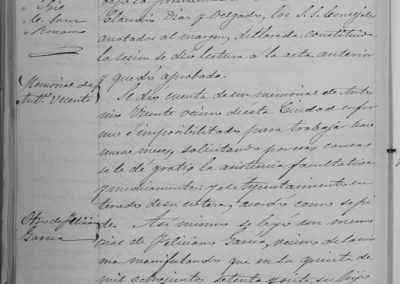 bajo la presidencia
Claudio Diaz y Delgado, los S.S. Concejales
anotados al margen, declarada constituida
la sesion se dio lectura a la acta anterior
y quedó aprobada.
Memorial de
Antº Vicente
Se dio cuenta de un memorial de Anto
nio Vicente vecino de esta Ciudad enfer
mo é imposibilitado para trabajar hace
nueve meses, solicitando por esa causa
se le dé grátis la asistencia facultativa
y medicamentos: y el Ayuntamiento en
terado de su lectura, acordó como se pi
de.
Otro de Feliciano
Garcia
Asi mismo se leyó un memo
rial de Feliciano Garcia, vecino de la mis
ma manifestando que en la quinta de
mil ochocientos setenta y siete su hijo